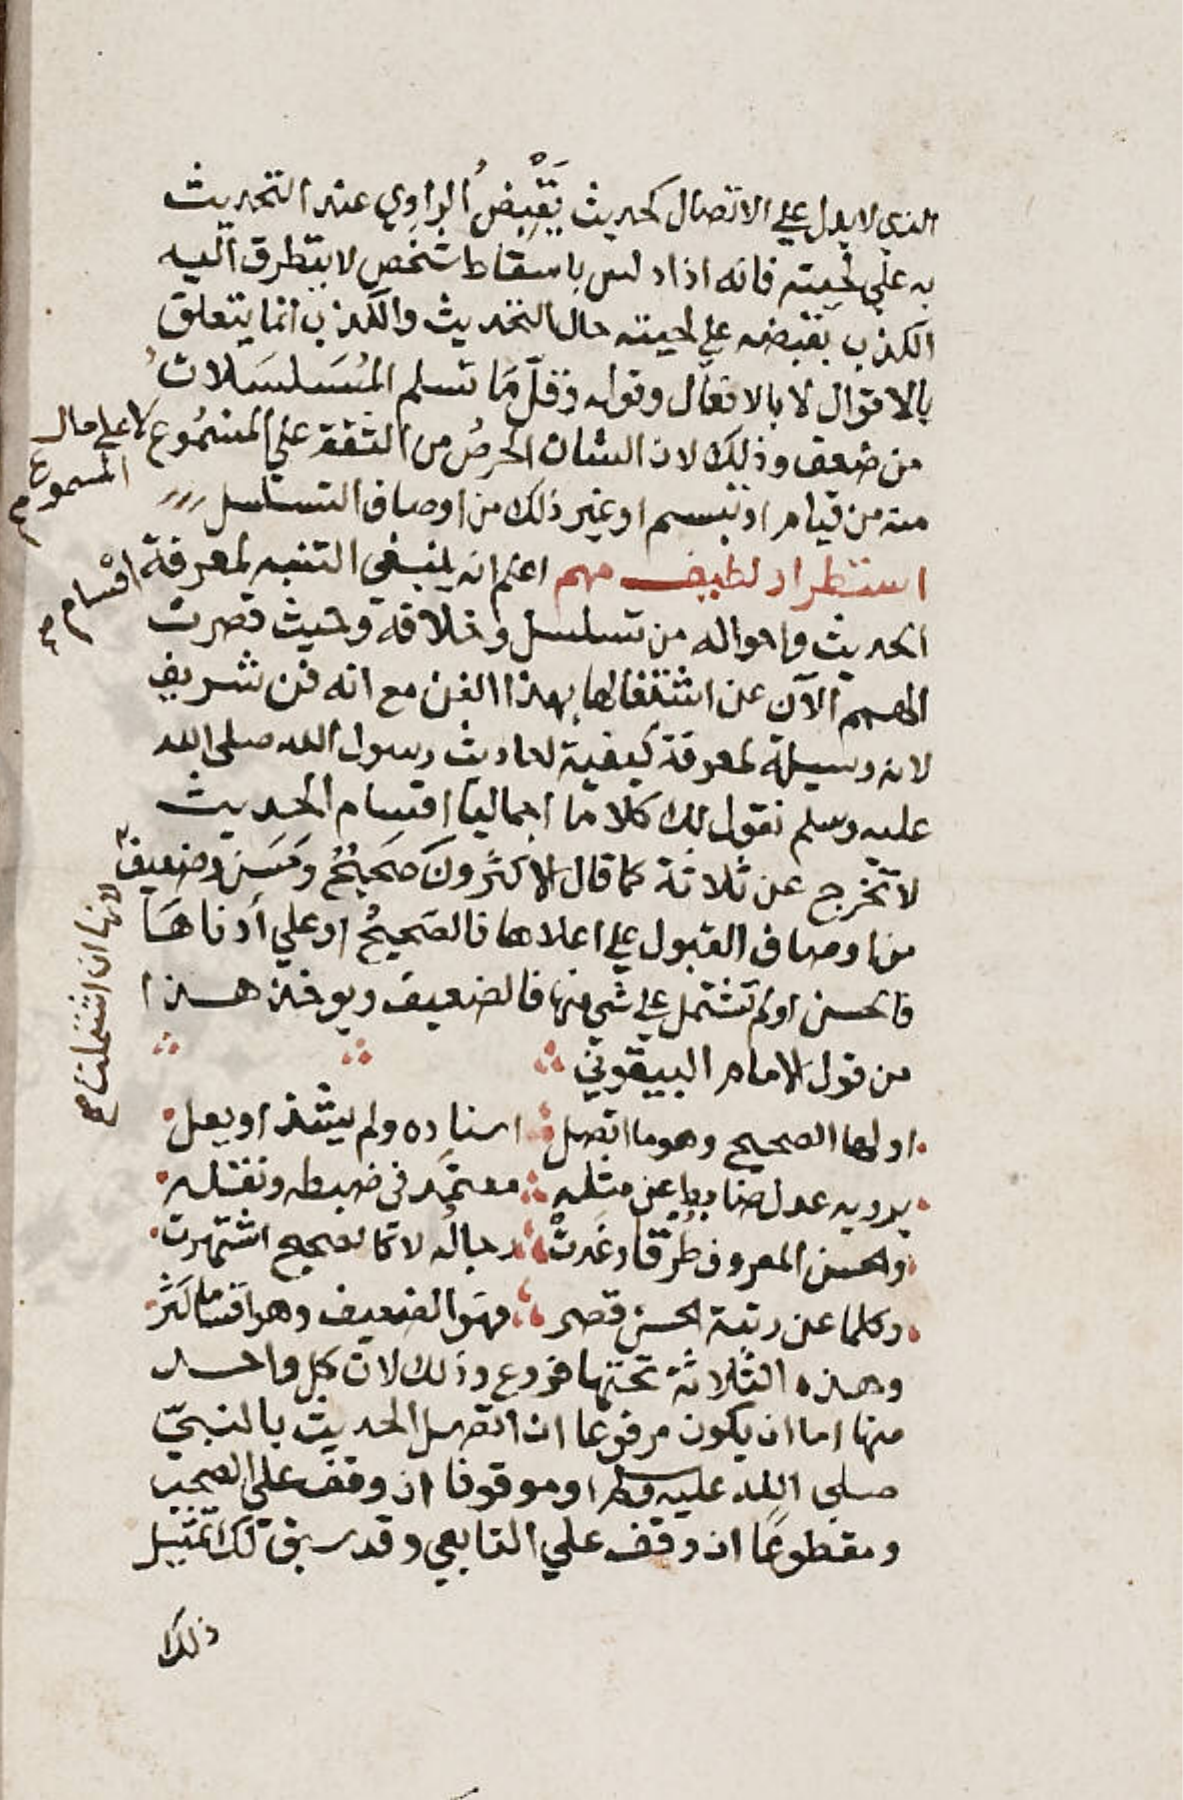 الذي لا يدل علي الاتصال كحديث يَقْبِضُ الراوي عند التحديث
به علي لحيته فانه اذا دلس باسقاط شخص لا يتطرق اليه
الكذب بقبضه علي لحيته حال التحديث والكذب انما يتعلق
بالاقوال لا بالافعال وقوله وقلّ مَا تسلم المُسَلسَلاتُ
من ضعف وذلك لان الشان الحرصُ من الثقة علي المسْمُوع لا علي حال
المسموع
منه من قيام او تبسم او غير ذلك من اوصاف التسلسل
استطراد لطيف مهم اعلم انه ينبغي التنبه لمعرفة اقسام
الحديث واحواله من تسلسل وخلافه وحيث قصرت
الهمم الآن عن اشتغالها بهذا الفن مع انه فن شريف
لانه وسيلة لمعرفة كيفية احاديث رسول الله صلى الله
عليه وسلم نقول لك كلامًا اجماليا اقسام الحديث
لا تخرج عن ثلاثة كما قال الاكثرونَ صَحيحٌ وحَسَن وضعيف
لانها ان اشتملت
من اوصاف القبول علي اعلاها فالصَحيحُ او علي أدناهَا
فالحسن او لم تشتمل علي شي منها فالضعيف ويوخذ هذا
من قول الامام البيقوني
اولها الصحيح وهو ما اتصل اسناده ولم يشذ او يعل
يرويه عدل ضابط عن مثله معتمَد في ضبطه ونقله
والحسن المعروف طُرْقا وغدتْ رجالُه لا كالصحيح اشتهرت
وكلما عن رتبة الحسن قصر فهوَ الضعيف وهو اقساما كَثُر
وهذه الثلاثة تحتها فروع وذلك لان كل واحد
منها اما ان يكون مرفوعا ان اتصل الحديث بالنبيّ
صلي الله عليه وسلم او موقوفا ان وقف علي الصحب
ومقطوعًا ان وقف علي التابعي وقد سبق لك تمثيل
ذلك